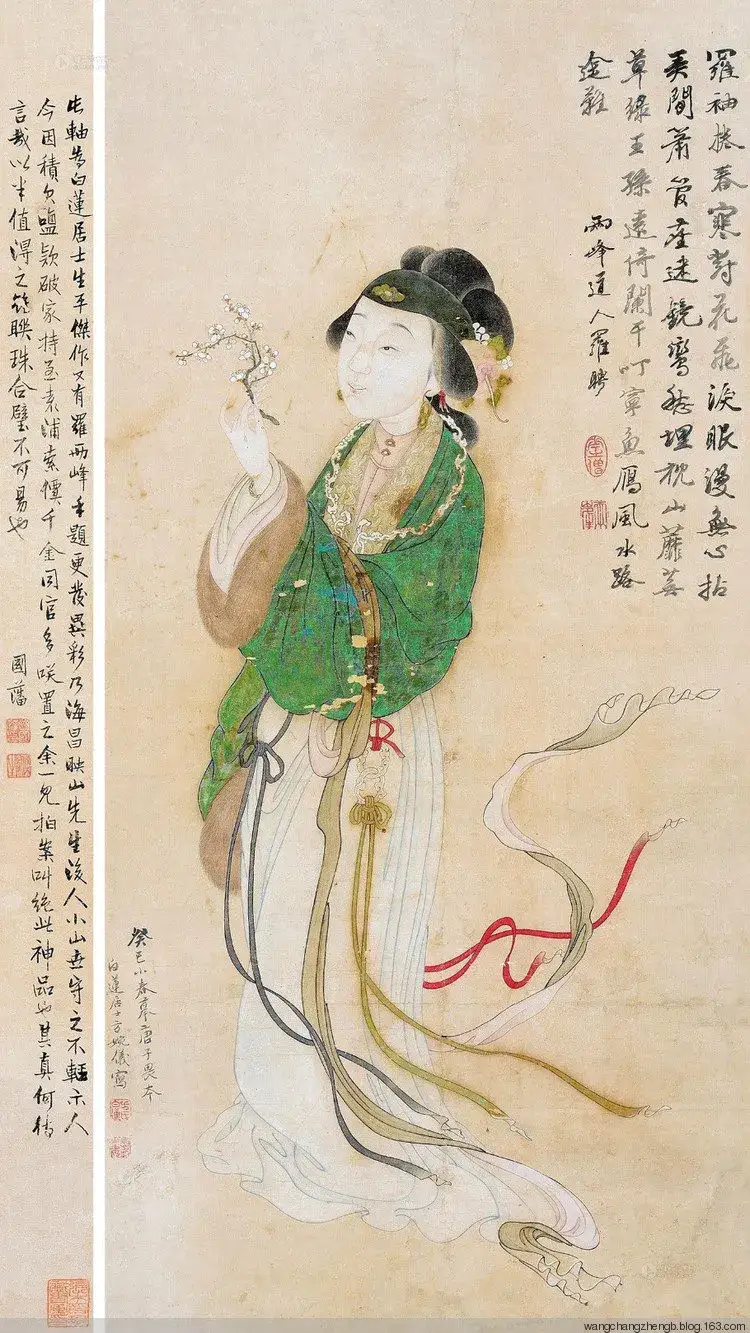 羅袖捲春寒對花飛淚眼漫無心拈
弄閒簫管塵迷鏡鸞愁埋枕山蘼蕪
草綠王孫遠倚闌干叮寧魚鴈風水路
途難
兩峰道人羅聘
癸巳小春摹唐子畏本
白蓮居士方婉儀寫
此軸為白蓮居士生平傑作又有羅兩峰手題更發異彩乃海昌映山先生後人小山世守之不輕示人
今因積欠鹽款破家持至袁浦索價千金同官多咲置之余一見拍案叫絕此神品也其真何待
言哉以半值得之聯珠合璧不可易也
國藩
wangchangzhengb.blog.163.com